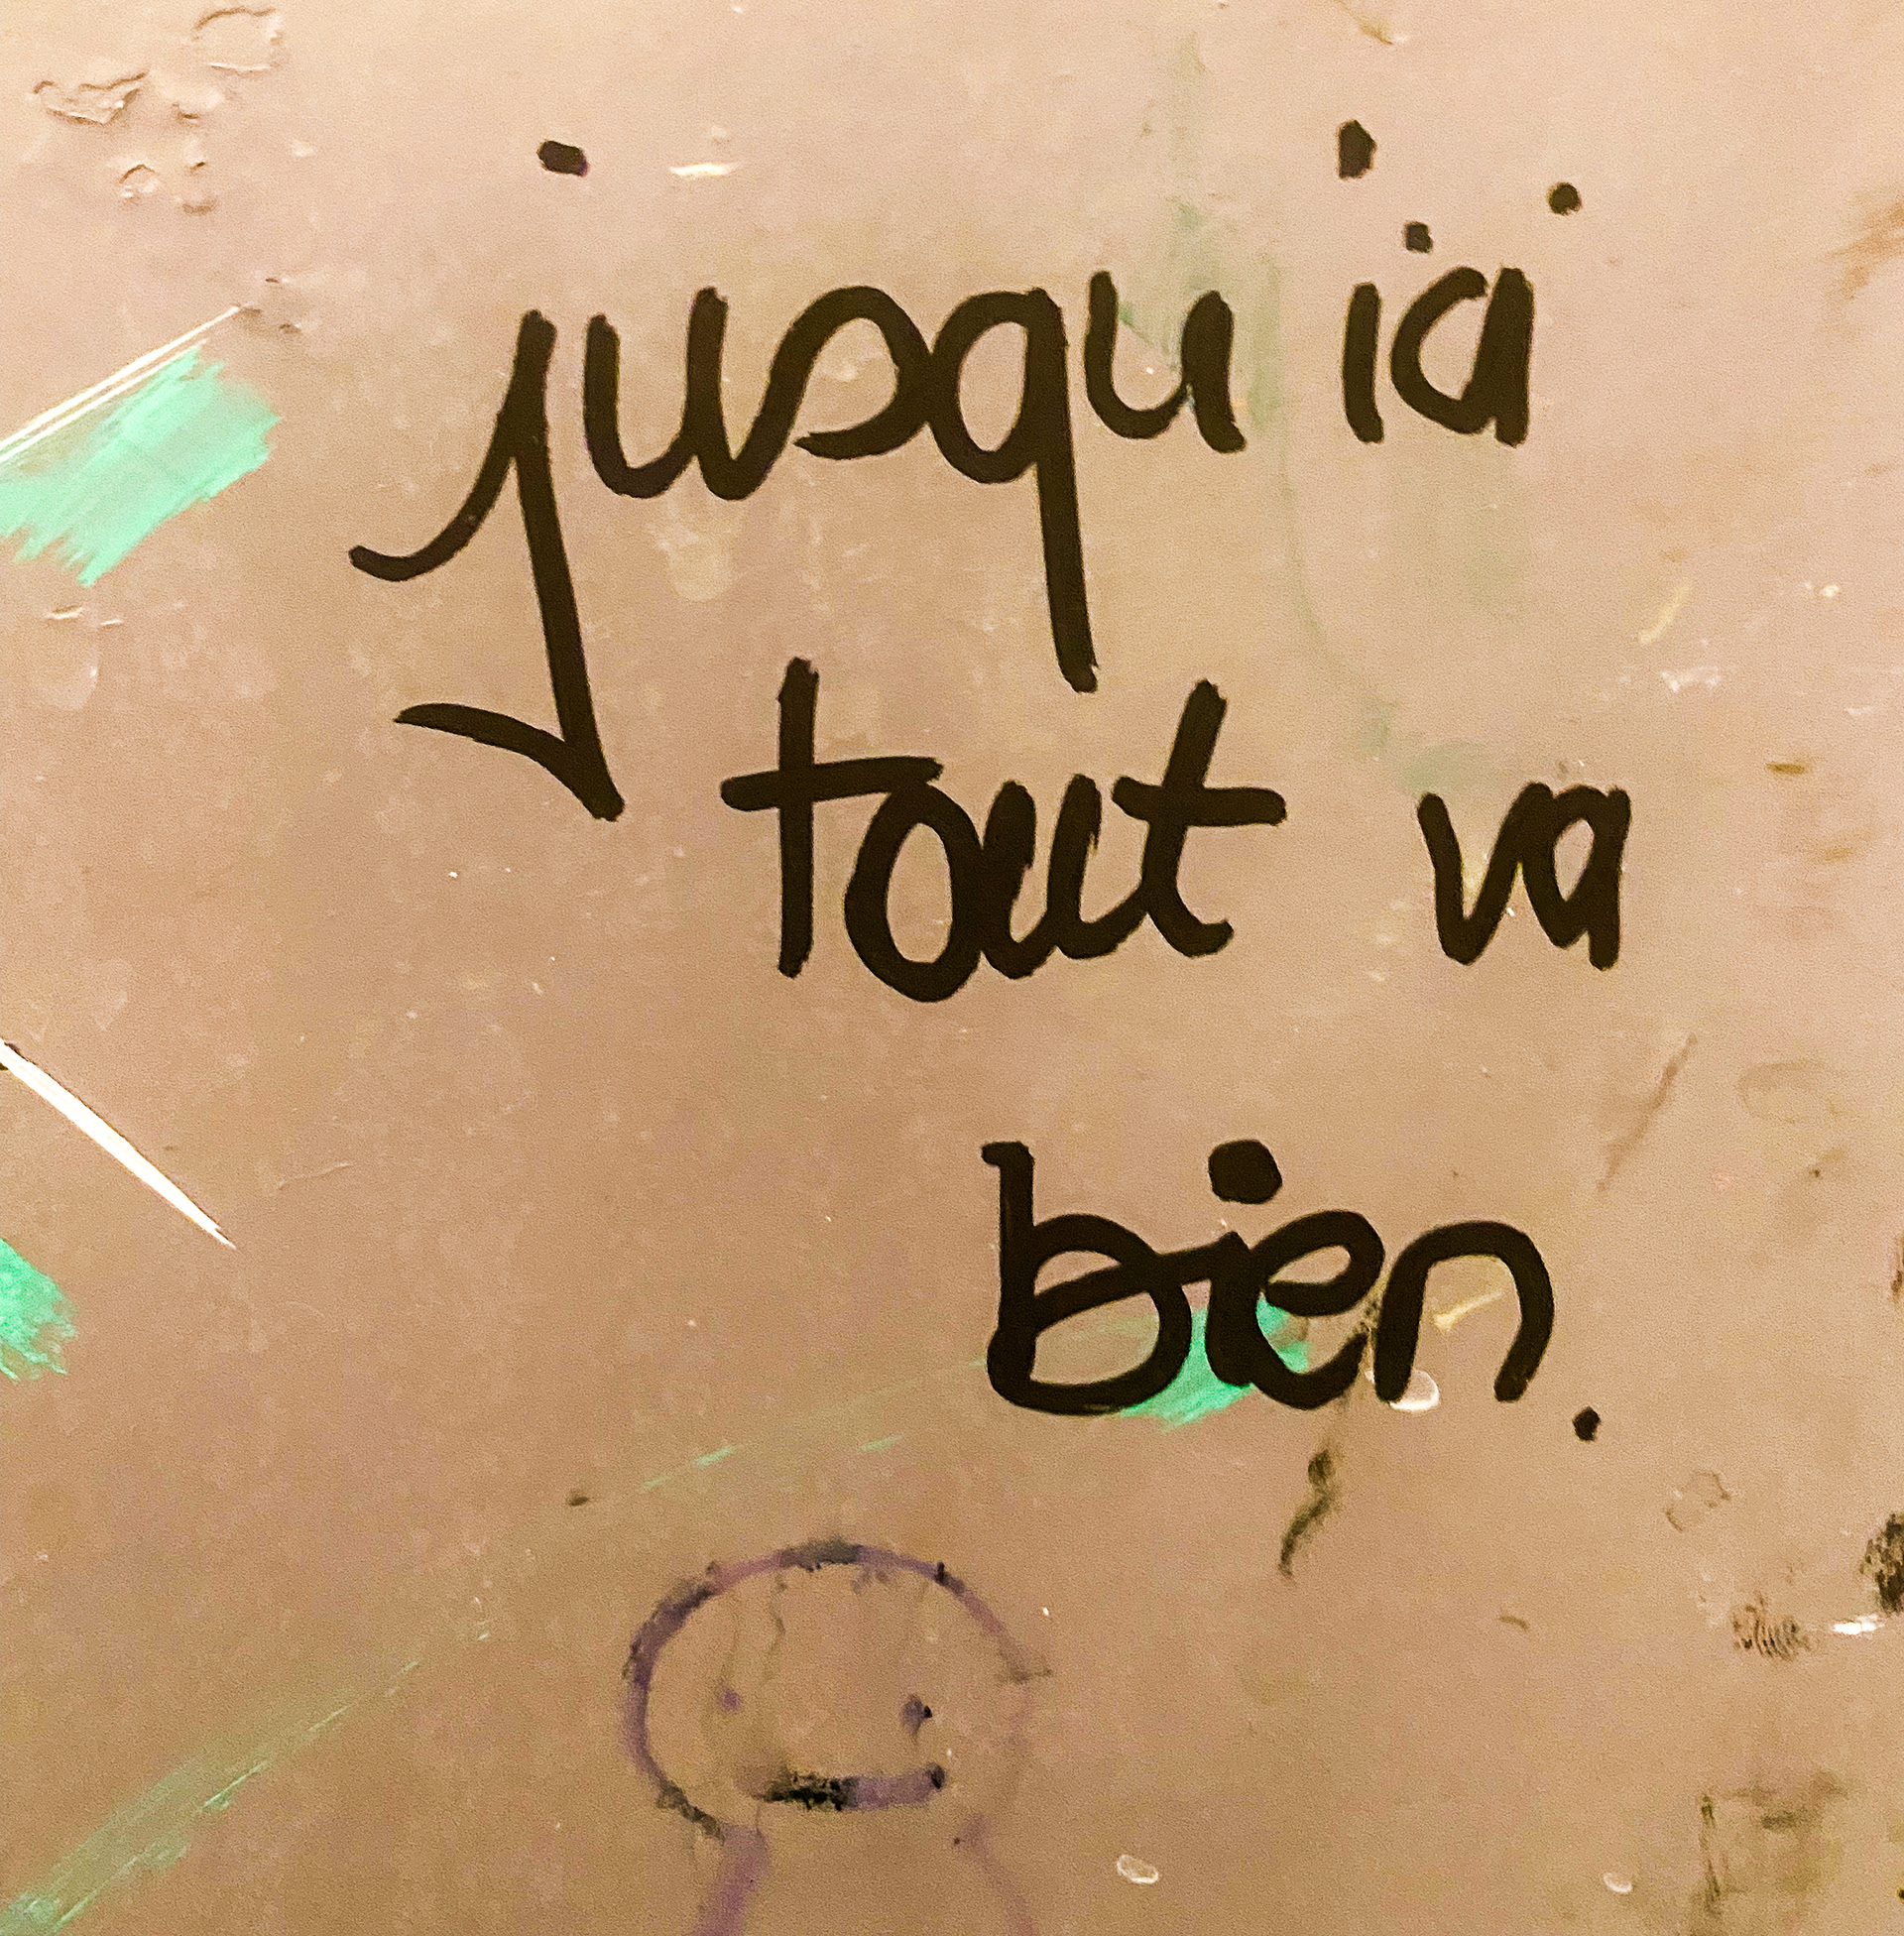 jusqu'ici
tout va
bien.